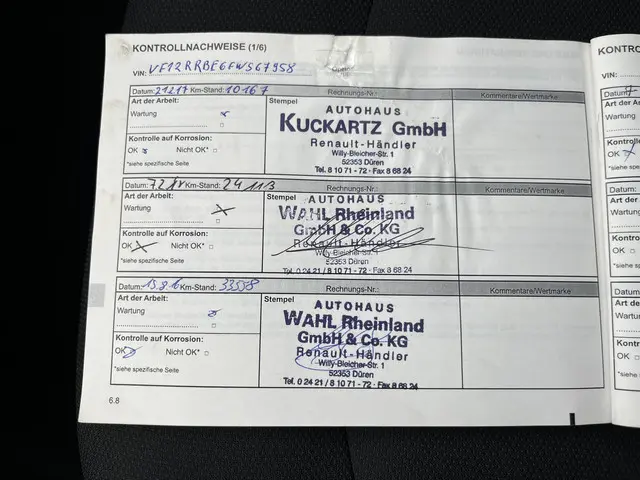 KONTROLLNACHWEISE (1/6)
VIN: VF12RRBE6FW567958
Datum: 21217 Km-Stand: 10167 Rechnungs-Nr.: Kommentare/Wertmarke
Art der Arbeit: Stempel
Wartung
Kontrolle auf Korrosion:
OK Nicht OK*
*siehe spezifische Seite
AUTOHAUS
KUCKARTZ GmbH
Renault-Händler
Willy-Bleicher-Str. 1
52353 Düren
Tel. 8 10 71 - 72 · Fax 8 68 24
Datum: Km-Stand: 24113 Rechnungs-Nr.: Kommentare/Wertmarke
Art der Arbeit: Stempel
Wartung
Kontrolle auf Korrosion:
OK Nicht OK*
*siehe spezifische Seite
AUTOHAUS
WAHL Rheinland
GmbH & Co. KG
Renault-Händler
Willy-Bleicher-Str. 1
52353 Düren
Tel. 0 24 21 / 8 10 71 - 72 · Fax 8 68 24
Datum: Km-Stand: Rechnungs-Nr.: Kommentare/Wertmarke
Art der Arbeit: Stempel
Wartung
Kontrolle auf Korrosion:
OK Nicht OK*
*siehe spezifische Seite
AUTOHAUS
WAHL Rheinland
GmbH & Co. KG
Renault-Händler
Willy-Bleicher-Str. 1
52353 Düren
Tel. 0 24 21 / 8 10 71 - 72 · Fax 8 68 24
6.8
KONTRO
VIN:
Datum:
Art der A
Wartung
Kontrolle
OK
*siehe spe
Datum:
Art der A
Wartung
Kontrolle
OK
*siehe spe
Datum:
Art der A
Wartung
Kontrolle
OK
*siehe spe